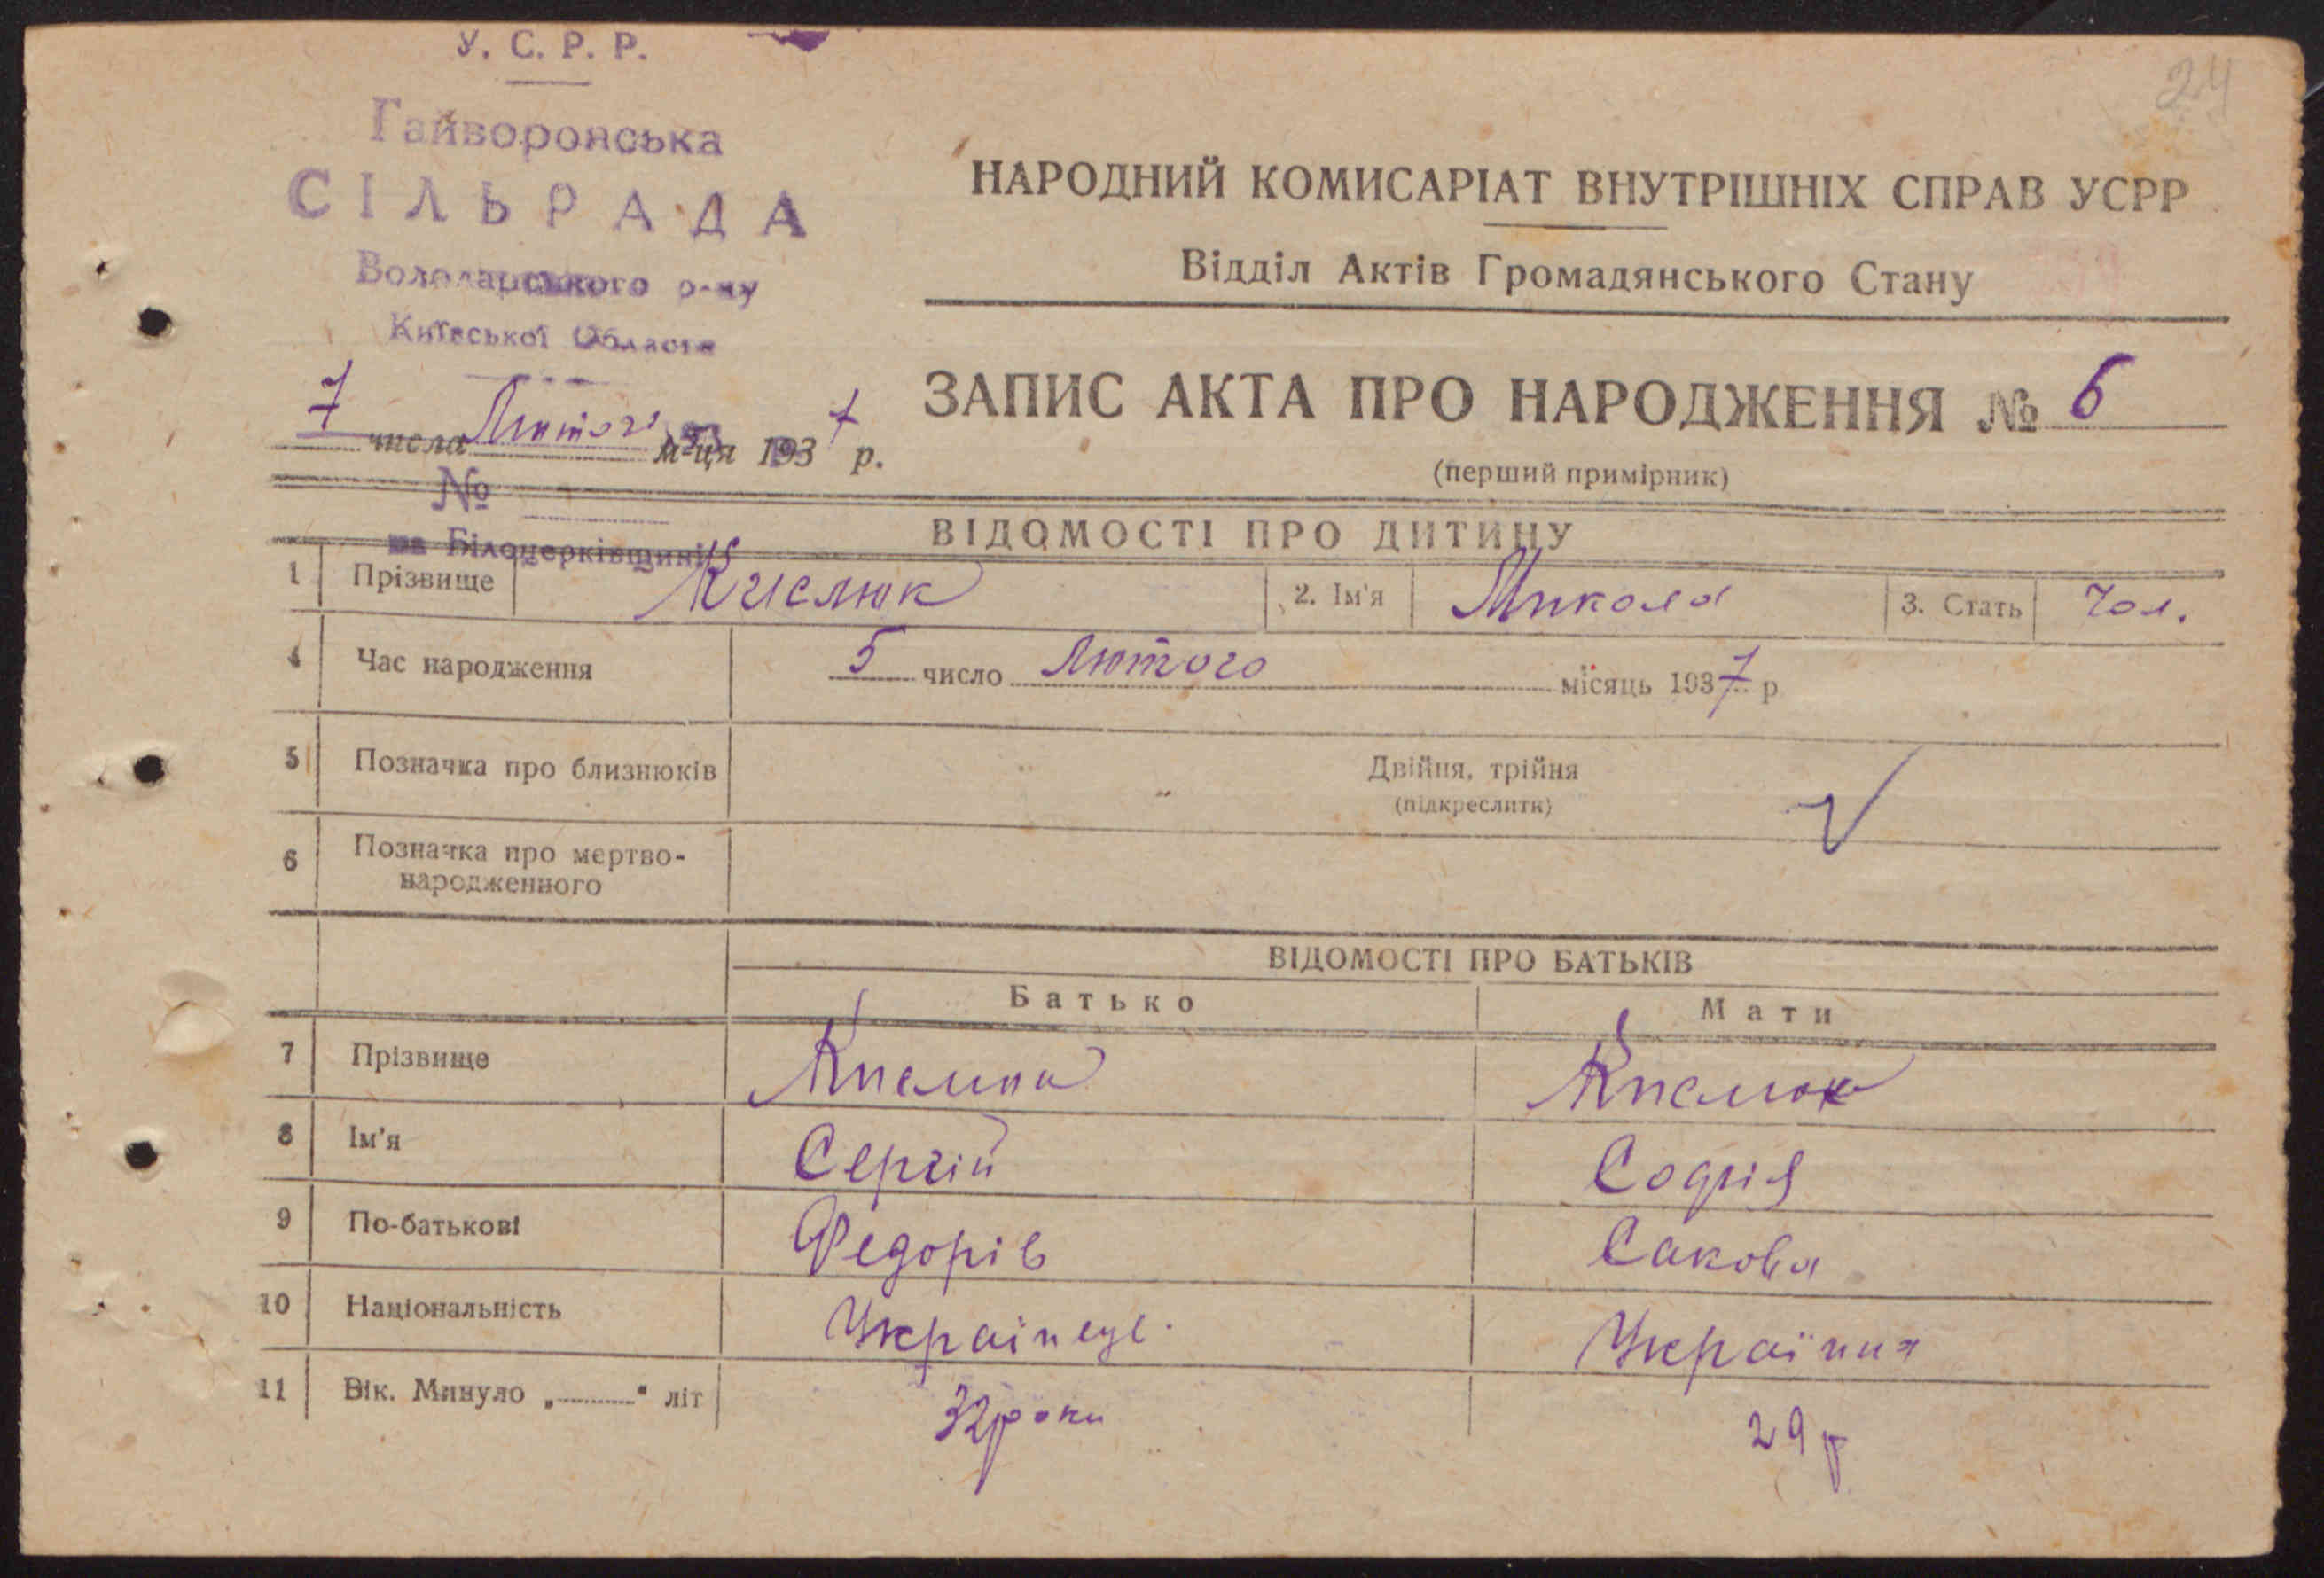 24
У. С. Р. Р.
Гайворонська
СІЛЬРАДА
Володарського р-ну
Київської Області
7 числа Лютого м-ця 1937 р.
№
на Білоцерківщині
НАРОДНИЙ КОМИСАРІАТ ВНУТРІШНІХ СПРАВ УСРР
Відділ Актів Громадянського Стану
ЗАПИС АКТА ПРО НАРОДЖЕННЯ № 6
(перший примірник)
ВІДОМОСТІ ПРО ДИТИНУ
1 Прізвище Кислюк 2. Ім'я Микола 3. Стать Чол.
4 Час народження 5 число Лютого місяць 1937 р
5 Позначка про близнюків Двійня, трійня
(підкреслити)
6 Позначка про мертво-
народженного
ВІДОМОСТІ ПРО БАТЬКІВ
Батько Мати
7 Прізвище Кислюк Кислюк
8 Ім'я Сергій Софія
9 По-батькові Федорів Сакова
10 Національність Українець. Українка
11 Вік. Минуло „ “ літ 32 роки 29 р